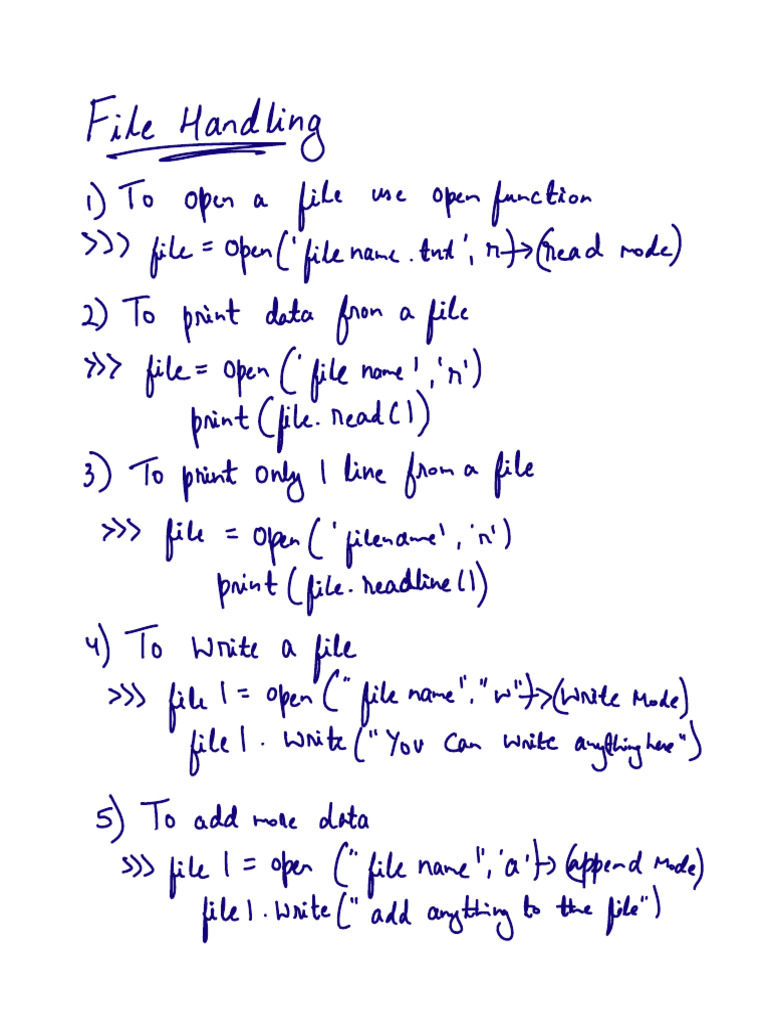 File Handling
1) To open a file use open function
>>> file = open('file name.txt', r) → (read mode)
2) To print data from a file
>>> file = open ('file name', 'r')
print (file. read( ))
3) To print only 1 line from a file
>>> file = open ('filename', 'r')
print (file. readline( ))
4) To write a file
>>> file 1 = open ("file name", "w") → (write mode)
file 1. write ("You can write anything here")
5) To add more data
>>> file 1 = open ("file name", 'a') → (append mode)
file 1. write (" add anything to the file")